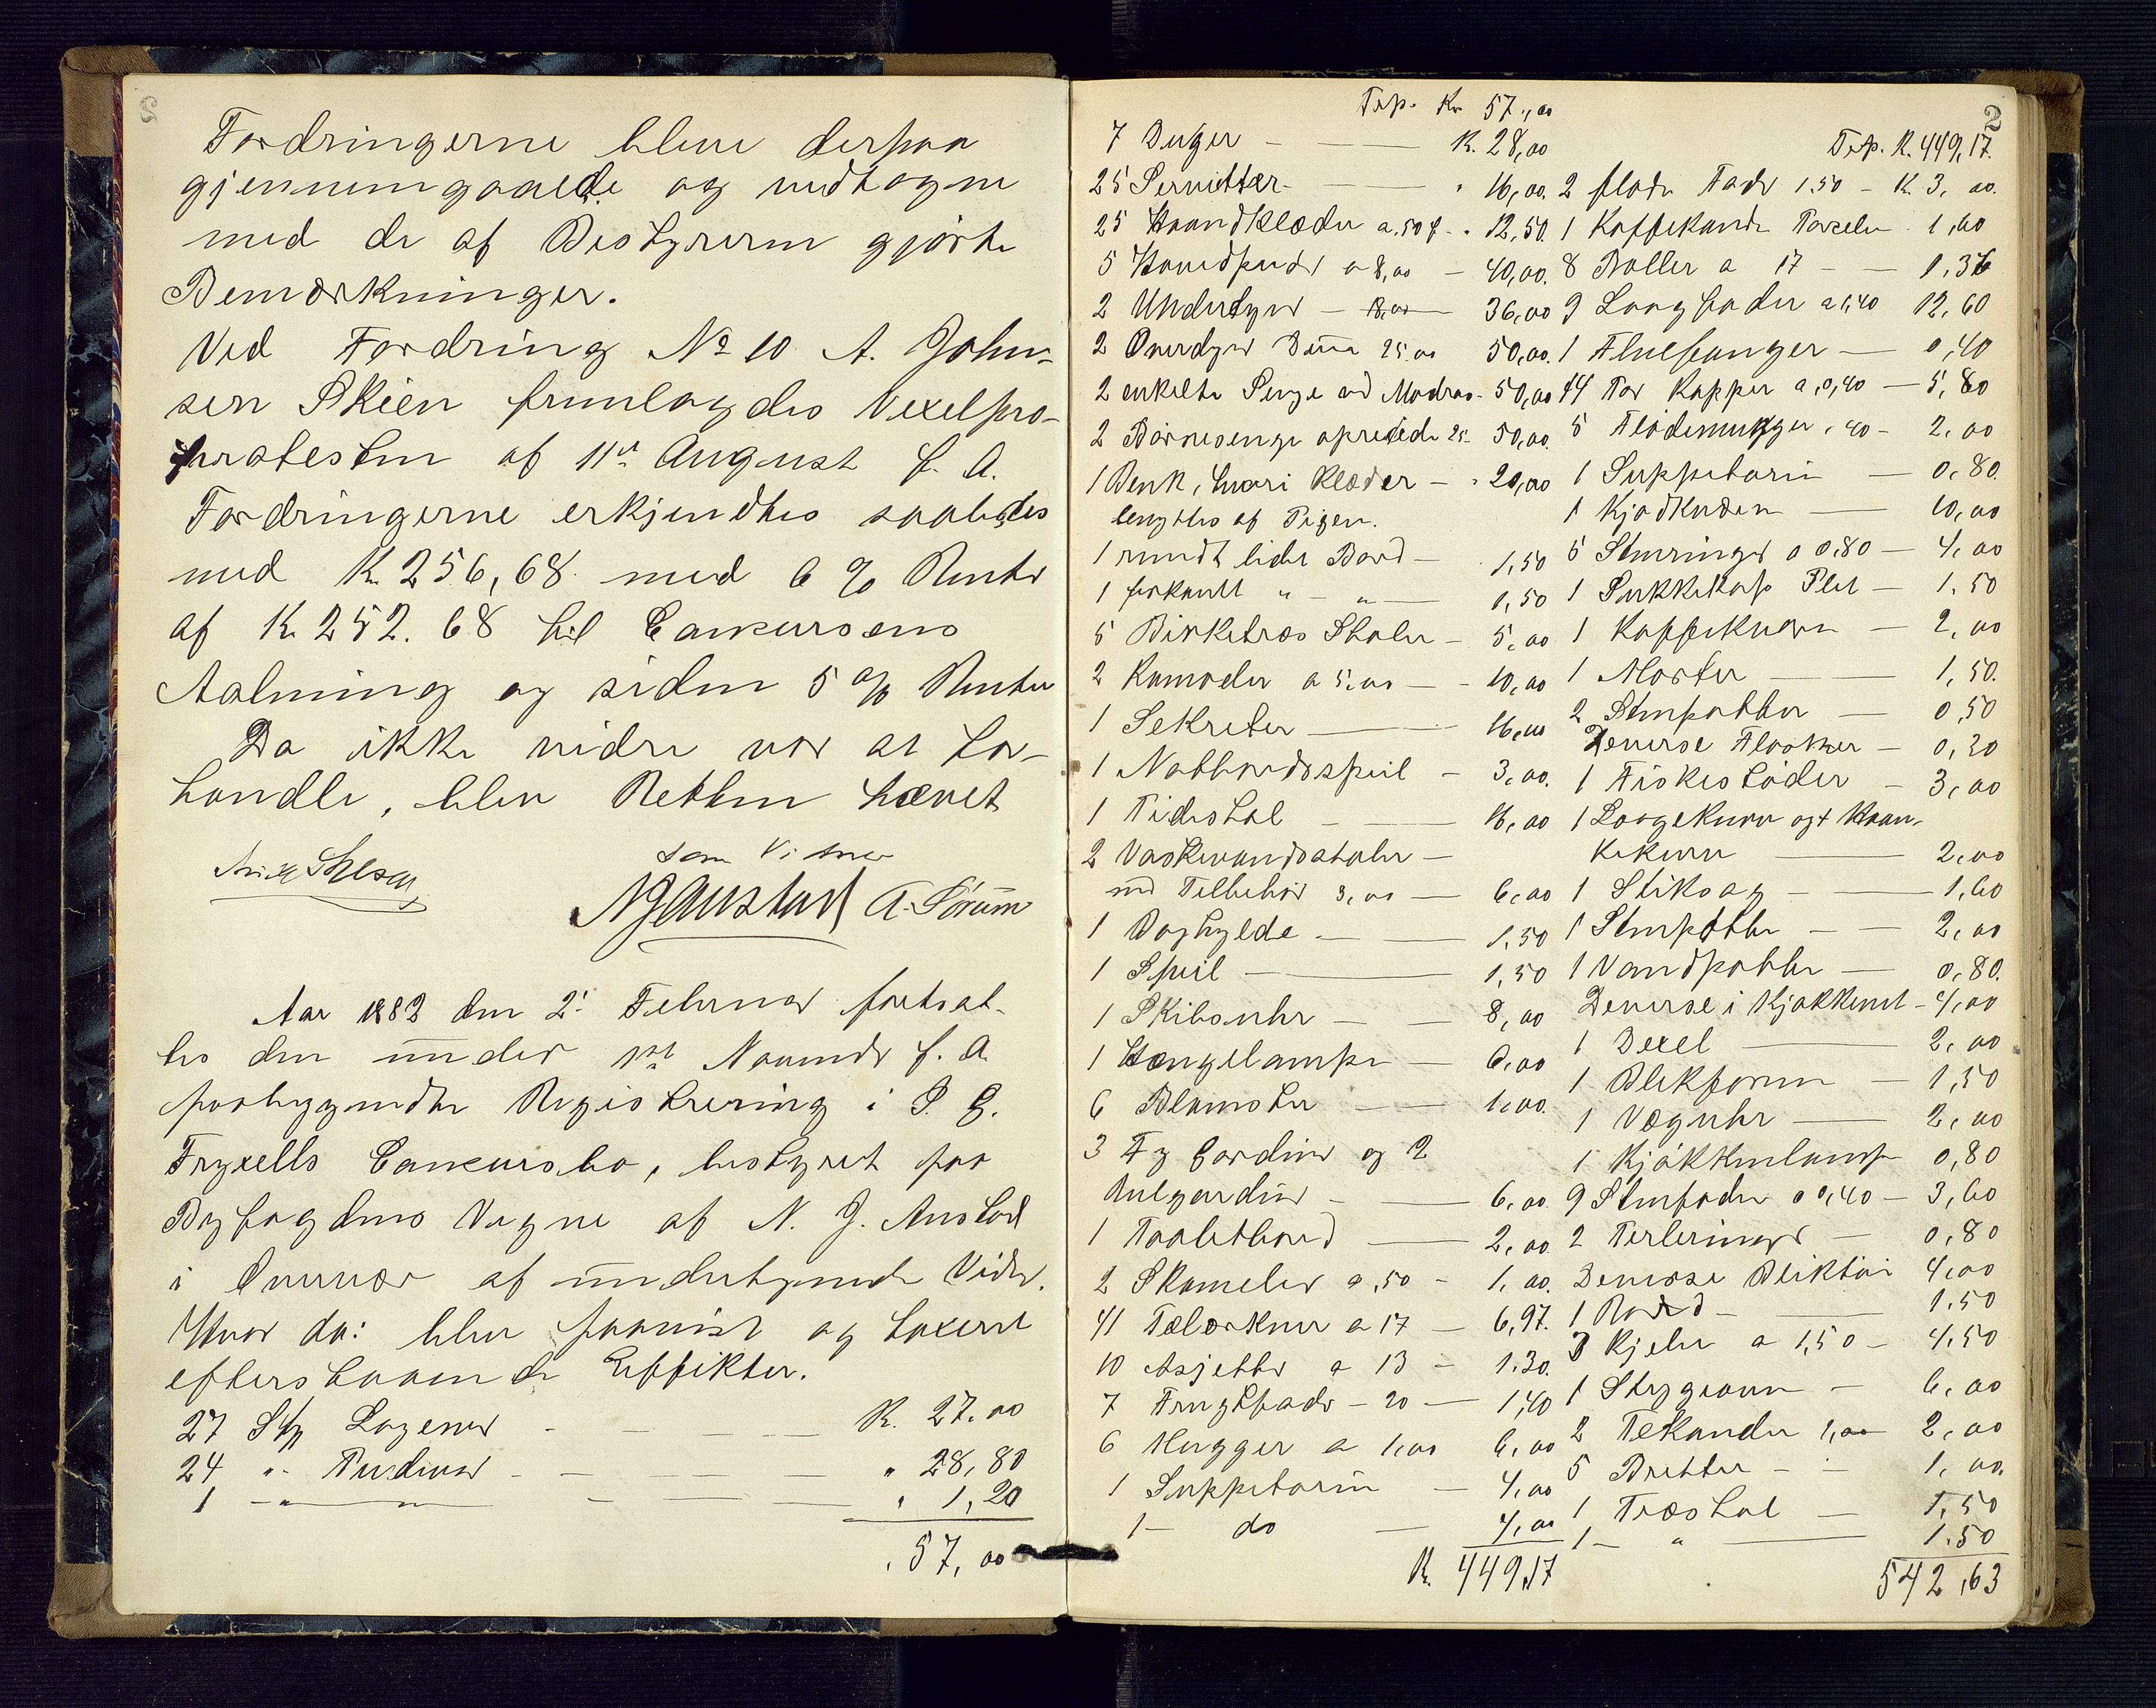 Fordringerne bleve derpaa
gjennemgaaede og vedtagne
med de af Bestyreren gjorte
Bemærkninger.
Ved Fordring No 10 A. John-
sen Skien fremlagdes Vexelpro-
protesten af 11te August f. A.
Fordringerne erkjendtes saaledes
med K. 256,68 med 6 % Renter
af K. 252.68 til Concursens
Aabning og siden 5 % Renter
Da ikke videre var at for-
handle, blev Retten hævet
som Vidner
NJAustad A. Sörum
Aar 1882 den 2. Februar fortsat-
tes den under 1ste Novembr f. A.
paabegyndte Registrering i S. G.
Fryxells Concursbo, bestyret paa
Byfogdens Vegne af N. J. Austad
i Overvær af undertegnede Vidn.
Hvor da: blev paavist og taxeret
efterstaaende Effekter.
27 Stk Lagener - K. 27.00
24 " Pudevar - " 28,80
1 - " - " 1,20
57,00
2
Trp. Kr. 57,00
7 Duger - K. 28,00
25 Servietter - " 16,00
25 Haandklæder a,50 f - " 12,50
5 Hovedpuder a 8,00 - 40,00
2 Underdyner - 18,00 36,00
2 Overdyner 25.00 50,00
2 enkelte Senge med Madras - 50,00
2 Børnesenge opredede 25- 50,00
1 Benk, hvori Klæder - " 20,00
benyttes af Pigen.
1 rundt lidet Bord - 1,50
1 firkantt " - " 1,50
5 Birketræs Stoler - 5,00
2 Komoder a 5,00 - 10,00
1 Sekretær - 16,00
1 Natbordsspeil - 3,00
1 Tidestol - 16,00
2 Vaskevandsstoler -
md Tilbehør 3,00 - 6,00
1 Boghylde - 1,50
1 Speil - 1,50
1 Skibsuhr - 8,00
1 Hængelampe - 6,00
6 Blomster - 1,00
3 Fg Gardiner og 2
Rulgardiner - 6,00
1 Toaletbord - 2,00
2 Skameler a ,50 - 1,00
41 Talærkner a 17 - 6,97
10 Asjetter a 13 - 1.30
7 Frugtfade - 20 - 1,40
6 Mugger a 1,00 6,00
1 Suppeterin - 4,00
1 - do - 4,00
K. 449,17
Trp. K. 449,17.
2 flade Fade 1,50 - K 3,00
1 Kaffekande Porcelen 1,60
8 Boller a 17 - 1,36
9 Langfader a 1,40 12,60
1 Fluefanger - 0,40
14 Par Kopper a ,0,40 - 5,80
5 Flödemugger ,40 - 2,00
1 Suppeterin - 0,80
1 Kjødkværn - 10,00
5 Stenringer a 0,80 - 4,00
1 Sukkekop Plet - 1.50
1 Kaffekværn - 2,00
1 Morter - 1,50
2 Stenpotter - 0,50
Deverse Flasker - 0,20
1 Fiskestöder - 3,00
1 Laagekurv ogt Haan-
kekurv - 2,00
1 Stiksag - 1,60
1 Stenpotte - 2,00
1 Vandpotte - 0,80
Deverse i Kjøkkenet - 4,00
1 Bexel - 2,00
1 Blikform - 1,50
1 Væguhr - 2,00
1 Kjøkkenlampe 0,80
9 Stenfade a 0,40 - 3,60
2 Terleriner - 0,80
Deverse Bliktöi 4,00
1 Bord - 1.50
3 Kjeler a 1,50 - 4,50
1 Strygeovn - 6,00
2 Tekander 1,00 2,00
5 Bretter - 1,00
1 Træstol - 1,50
1 - " - 1.50
542,63